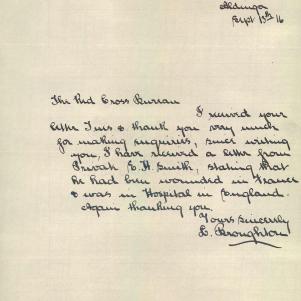 Aldinga
Sept 13th 16
The Red Cross Bureau
I received your
letter Tues & thank you very much
for making enquiries, since writing
you, I have received a letter from
Private E. H. Smith, stating that
he had been wounded in France
& was in Hospital in England.
Again thanking you
Yours Sincerely
L. Broughton